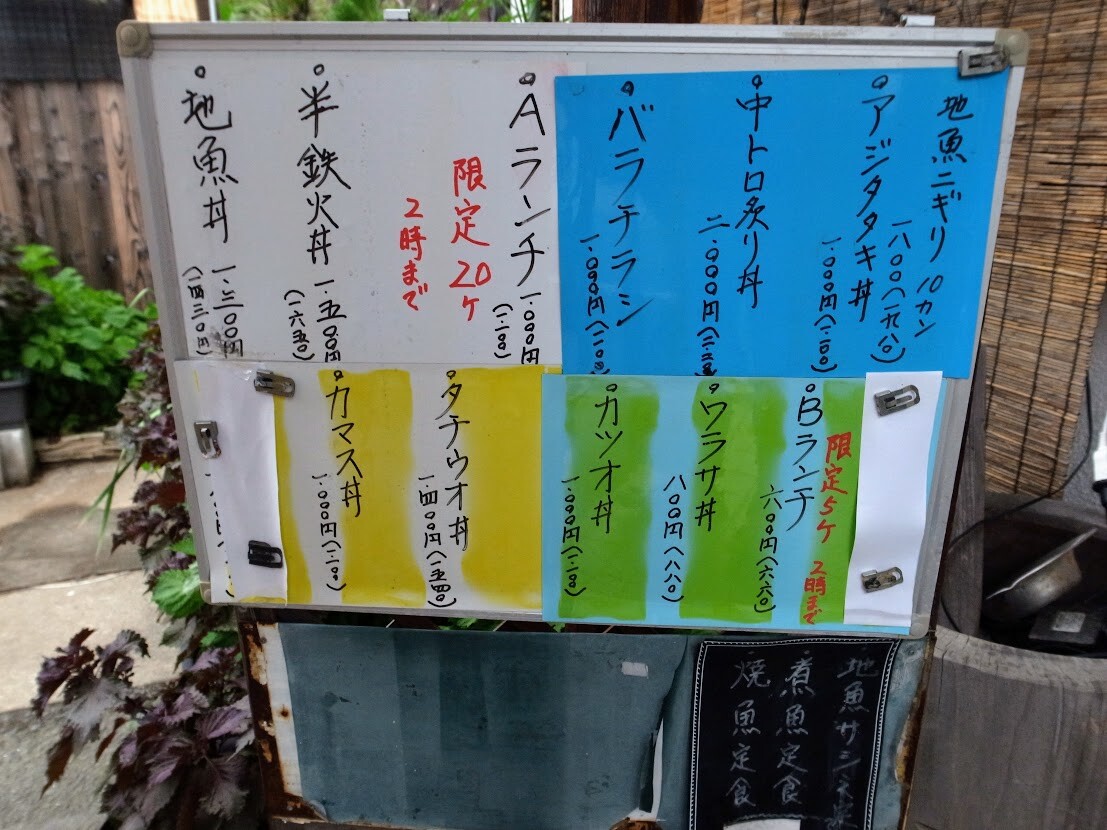 地魚ニギリ 10カン
一八〇〇(一九八〇)
アジタタキ丼
一.〇〇〇円(一.一〇〇)
中トロ炙り丼
二.〇〇〇円(二.二〇〇)
バラチラシ
一.〇〇〇円(一.一〇〇)
Aランチ
一.〇〇〇円(一.一〇〇)
限定20ケ
2時まで
半鉄火丼 一.五〇〇円
(一六五〇)
地魚丼 一.三〇〇円
(一四三〇円)
限定5ケ 2時まで
Bランチ
六〇〇円(六六〇)
ワラサ丼
八〇〇円(八八〇)
カツオ丼
一.〇〇〇円(一.一〇〇)
タチウオ丼
一四〇〇円(一五四〇)
カマス丼
一.〇〇〇円(一.一〇〇)
地魚サシ
煮魚定食
焼魚定食